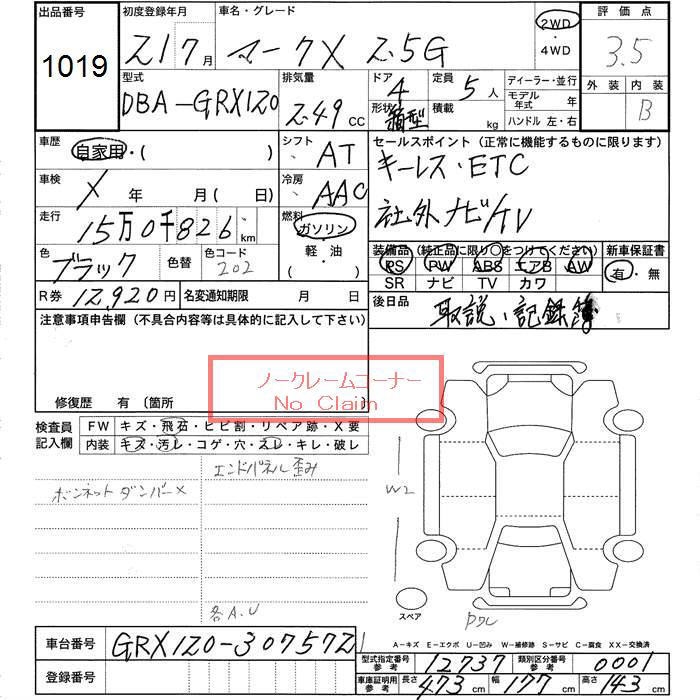 出品番号 初度登録年月 車名・グレード 評価点
1019 21 7月 マークX 2.5G 2WD ・ 4WD 3.5
型式 排気量 ドア 定員 ディーラー・並行 外装 内装
DBA-GRX120 2.49 CC 4 5人 モデル年式 年 B
形状 箱型 積載 kg ハンドル 左・右
車歴 自家用・( ) シフト AT セールスポイント (正常に機能するものに限ります)
キーレス・ETC
車検 X 年 月(日) 冷房 AAC
社外ナビ/TV
走行 15万0千826 km 燃料 ガソリン・軽・油
色 ブラック 色替 色コード 202
装備品 (純正品に限り○をつけてください) 新車保証書
PS PW ABS エアB AW 有・無
SR ナビ TV カワ
R券 12,920円 名変通知期限 月 日
後日品 取説、記録簿
注意事項申告欄 (不具合内容等は具体的に記入して下さい)
ノークレームコーナー
No Claim
修復歴 有 (箇所 )
検査員記入欄 FW キズ・飛石・ヒビ割・リペア跡・X要
内装 キズ・汚レ・コゲ・穴・スレ・キレ・破レ
エンドパネル歪み
ボンネットダンパーX
W2
各A.U
スペア
A-キズ E-エクボ U-凹み W-補修跡 S-サビ C-腐食 XX-交換済
車台番号 GRX120-3075721
登録番号
型式指定番号 参考 12737 類別区分番号 参考 0001
車庫証明用 参考 長さ 473 cm 幅 177 cm 高さ 143 cm